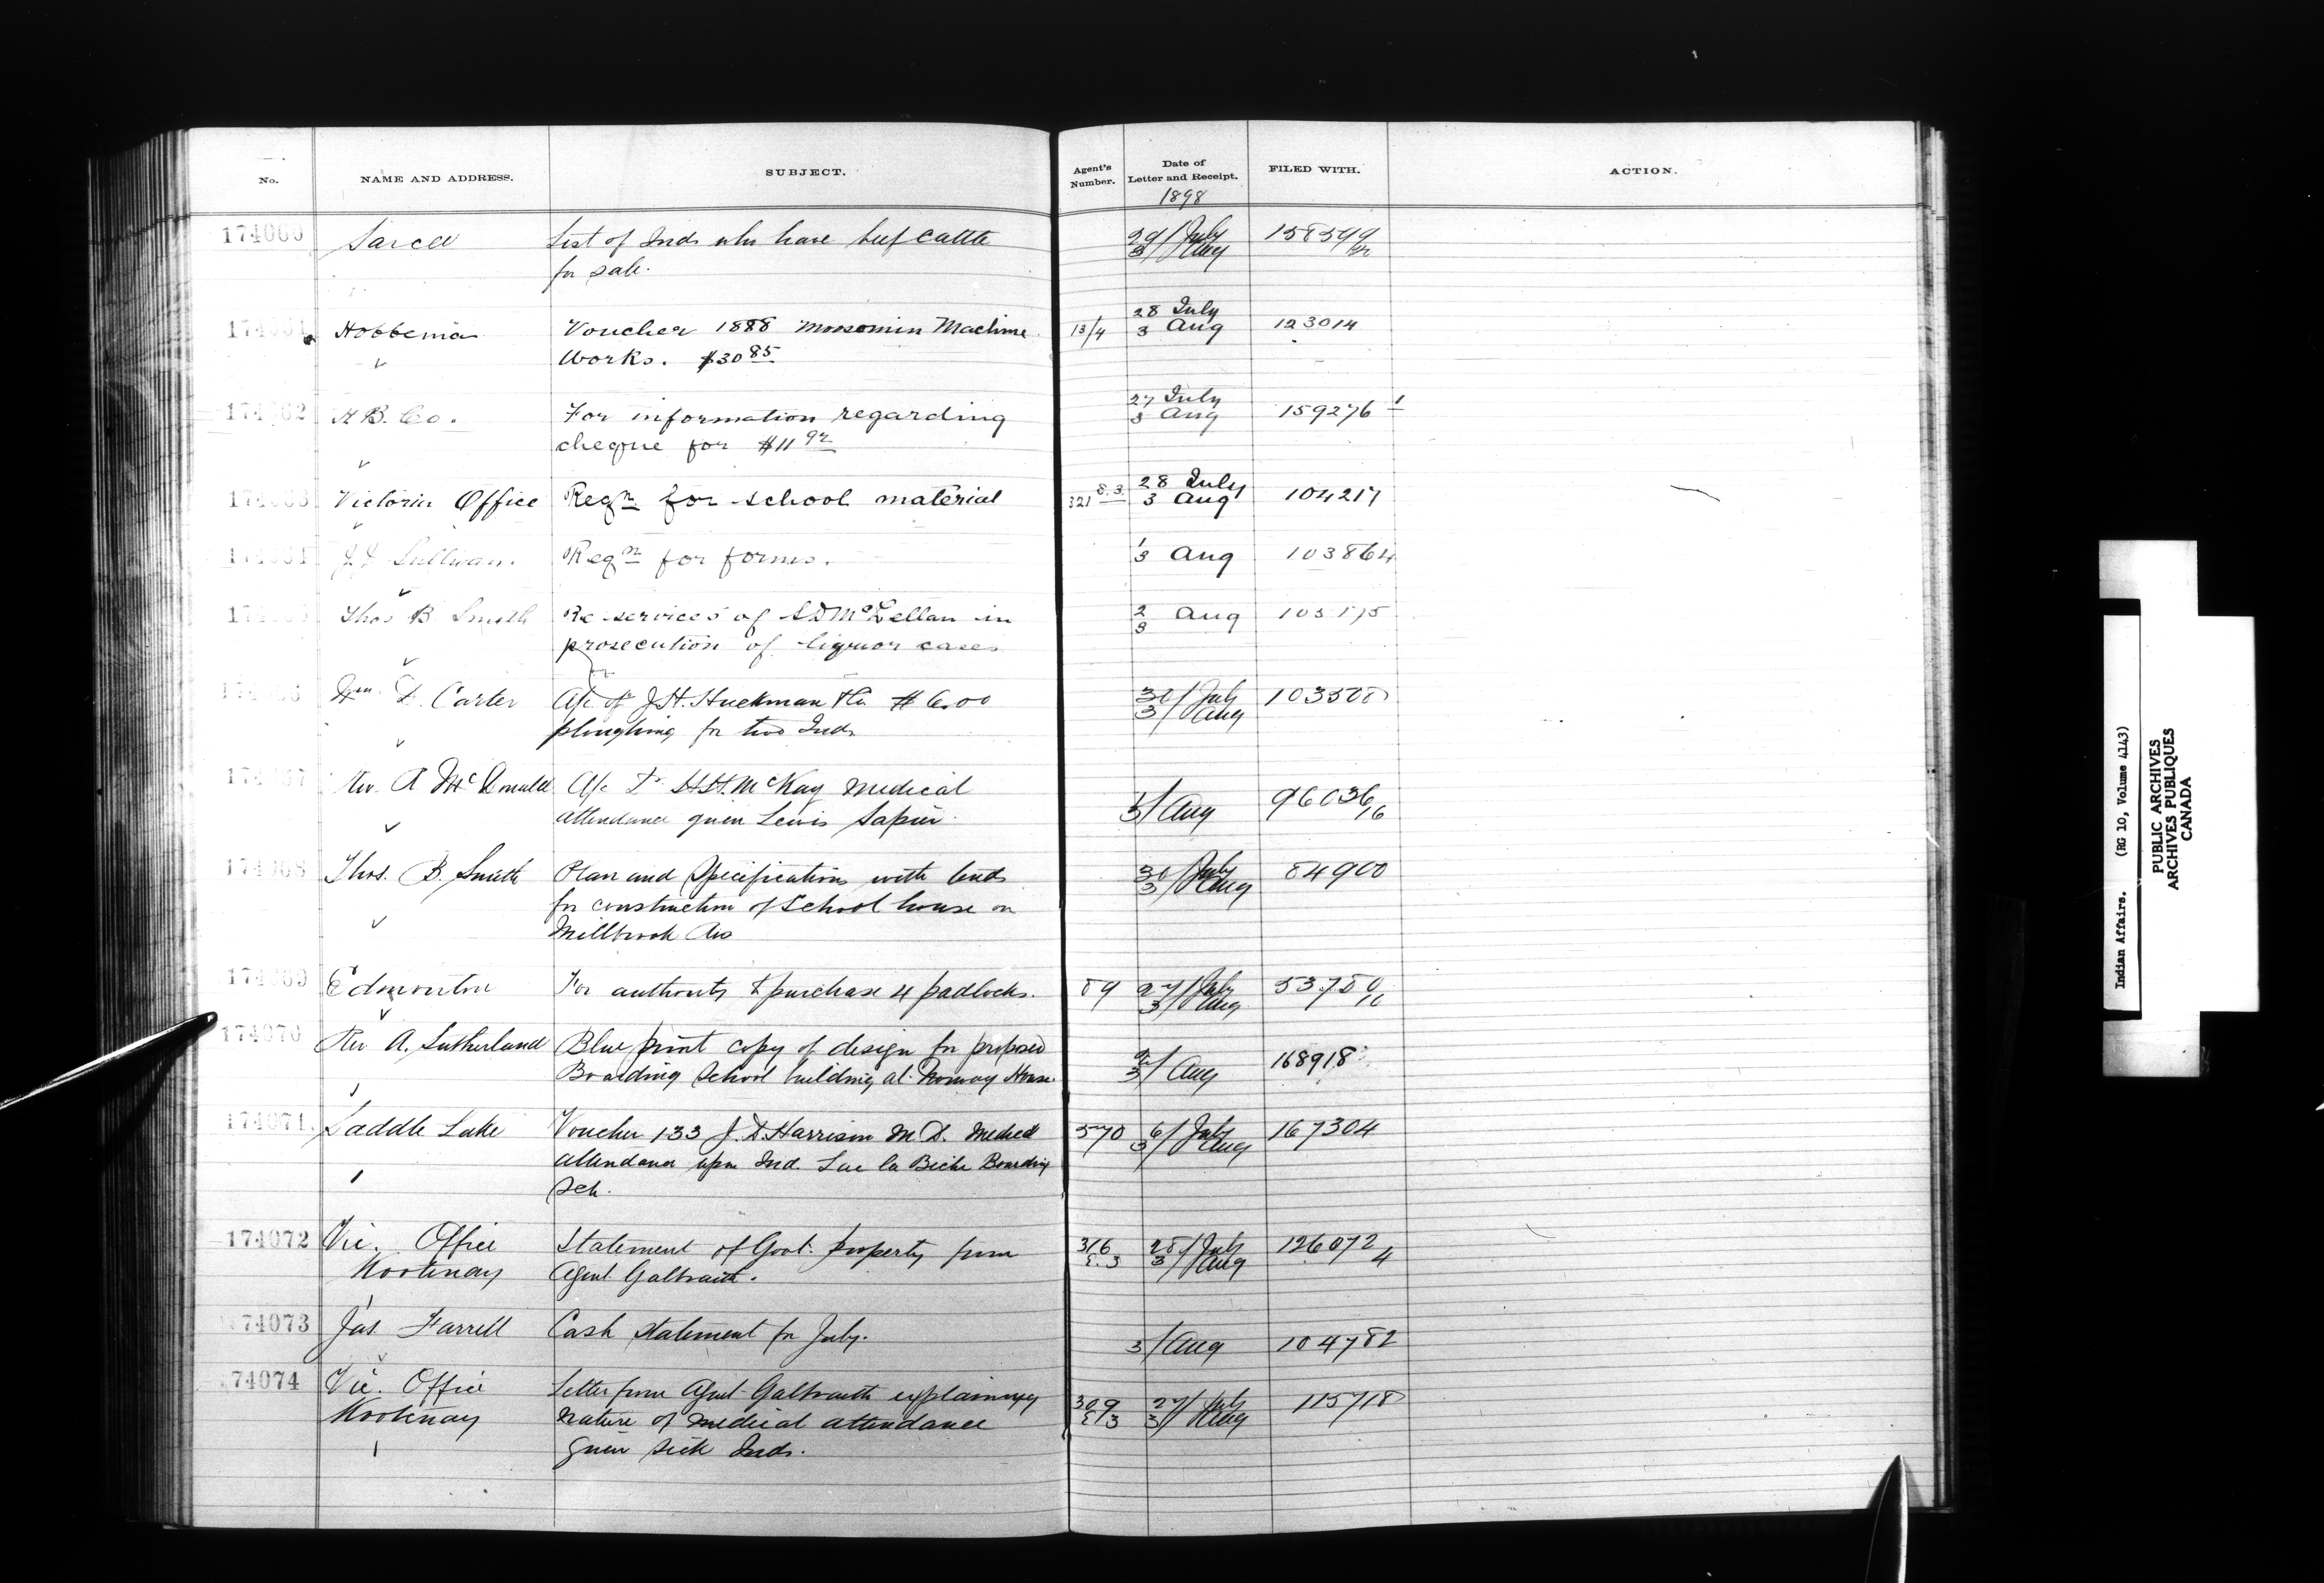 No. NAME AND ADDRESS. SUBJECT. Agent's Number. Date of Letter and Receipt. FILED WITH. ACTION.
1898
174060 Sarcee List of Inds who have beef cattle 29/July 158599
for sale. 3/Aug
174061 Hobbema Voucher 1888 Moosomin Machine 13/4 28 July 123014
Works. $30 85 3 Aug
174062 H B. Co. For information regarding 27 July 159276 1
cheque for $11 92 3 Aug
174063 Victoria Office Reqn for school material 321 E.3. 28 July 104217
3 Aug
174064 J J Sullivan. Reqn for forms. 1 103864
3 Aug
174065 Thos B. Smith Re services of S D McLellan in 2 Aug 103175
prosecution of liquor cases 3
174066 Wm. D. Carter A/c of J.H. Huckman $6.00 30/July 103508
ploughing for two Inds 3/Aug
174067 Rev. A McDonald A/c Dr H.H. McKay Medical 1 96036
attendance given Lewis Sapier 3/Aug 16
174068 Thos. B. Smith Plan and Specifications with 30/July 84900
for construction of School house on 3/Aug
Millbrook Res
174069 Edmonton For authority to purchase 4 padlocks. 89 27/July 53780
3/Aug
174070 Rev A. Sutherland Blue print copy of design for proposed 2 168918
Boarding School building at Norway House. 3/Aug
174071 Saddle Lake Voucher 133 J. D. Harrison M D. Medical 570 6/July 167304
attendance upon Ind. Lac la Biche Boarding 3/Aug
Sch.
174072 Vic. Office Statement of Govt. property from 316 28/July 126072
Kootenay Agent Galbraith. E.3 3/Aug 4
174073 Jas Farrell Cash statement for July. 3/Aug 104782
74074 Vic. Office Letter from Agent Galbraith explaining 309 27/July 115718
Kootenay nature of medical attendance E/3 3/Aug
given sick Inds.
Indian Affairs. (RG 10, Volume 4143)
PUBLIC ARCHIVES
ARCHIVES PUBLIQUES
CANADA